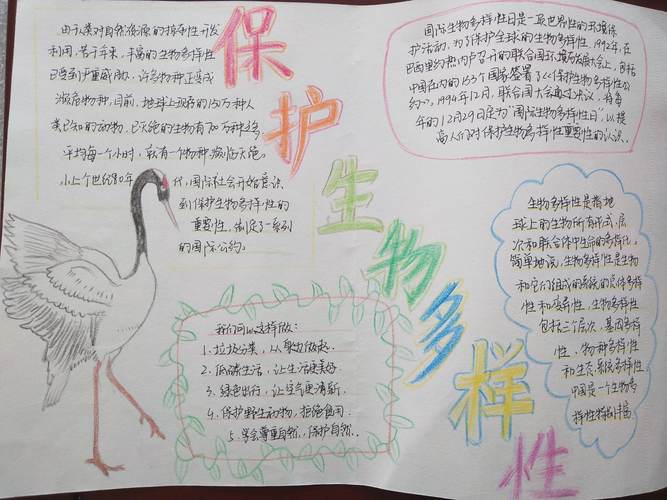 由于人类对自然资源的掠夺性开发
利用,若干年来,丰富的生物多样性
已受到严重威胁,许多物种正变成
濒危物种,目前,地球上现存的150万种人
类已知的动物,已灭绝的生物有700万种之多,
平均每一个小时,就有一个物种濒临灭绝。
小上个世纪80年代,国际社会开始意识
到保护生物多样性的
重要性,制定了一系列
的国际公约。
保护生物多样性
国际生物多样性日是一项世界性的环境保
护活动,为了保护全球的生物多样性,1992年,在
巴西里约热内卢召开的联合国环境与发展大会上,包括
中国在内的153个国家签署了《保护生物多样性公
约》,1994年12月,联合国大会通过决议,将每
年的12月29日定为"国际生物多样性日",以提
高人们对保护生物多样性重要性的认识。
生物多样性是指地
球上的生物所有形式,层
次和联合体中生命的多样化,
简单地说,生物多样性是生物
和它们组成的系统的总体多样
性和变异性,生物多样性
包括三个层次,基因多样
性,物种多样性
和生态系统多样性
中国是一个生物多
样性特别丰
我们可以这样做:
1、垃圾分类,从身边做起.
2、低碳生活,让生活更美好.
3、绿色出行,让空气更清新.
4、保护野生动物,拒绝食用.
5、学会尊重自然,保护自然.